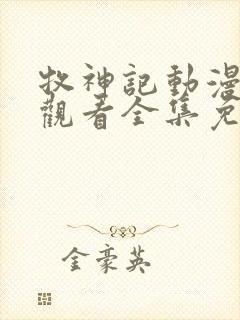 牧神記動漫
觀看全集免
金豪英